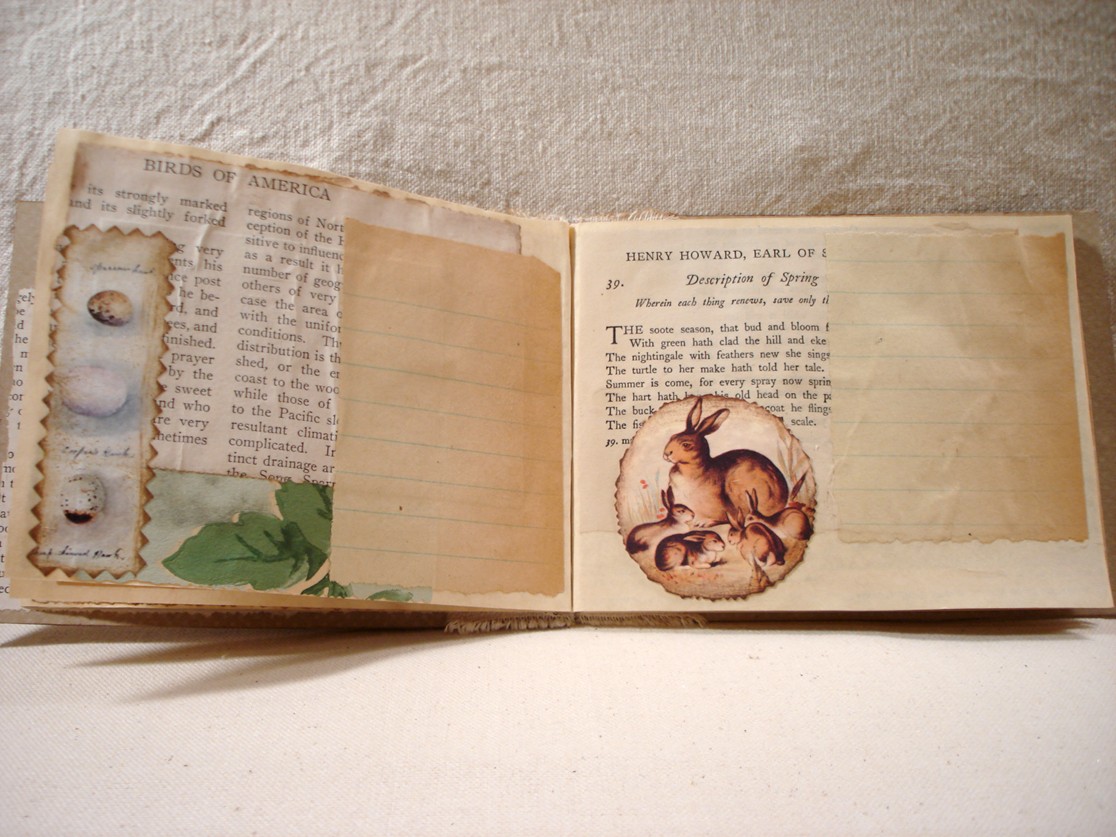 BIRDS OF AMERICA
its strongly marked
and its slightly forked
very
his
post
he be-
and
ces, and
inished.
prayer
by the
sweet
nd who
re very
metimes
regions of Nort
ception of the
sitive to influenc
as a result it
number of geog
others of very
case the area
with the unifor
conditions. Th
distribution is th
shed, or the
coast to the woo
while those of
to the Pacific sl
resultant climati
complicated. In
tinct drainage ar
the Song Spar
HENRY HOWARD, EARL OF S
39. Description of Spring
Wherein each thing renews, save only th
THE soote season, that bud and bloom f
With green hath clad the hill and eke
The nightingale with feathers new she sings
The turtle to her make hath told her tale.
Summer is come, for every spray now sprin
The hart hath his old head on the pa
The buck coat he flings
The fis scale.
39. m